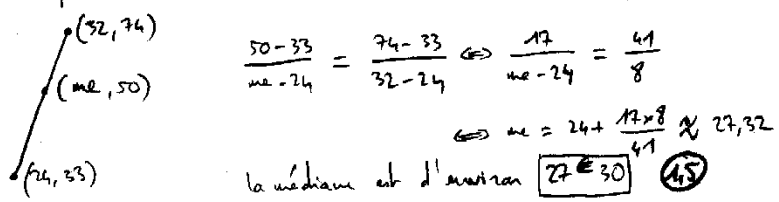 (32, 74)
(me, 50)
(24, 33)
50-33 / me-24 = 74-33 / 32-24 ⇔ 17 / me-24 = 41 / 8
⇔ me = 24 + 17×8 / 41 ≈ 27,32
la médiane est d'environ 27 € 30 1,5